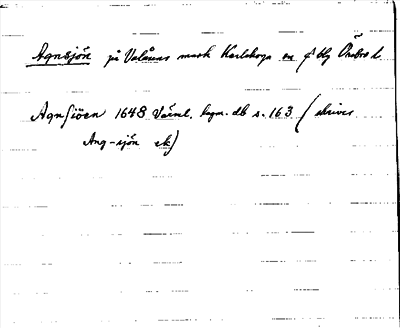 Agnsjön på Valåsens mark Karlskoga sn Örebro l.
Agnsjöen 1648 Värml. lagm. db s. 163 (skrives
Ang-sjön ek)